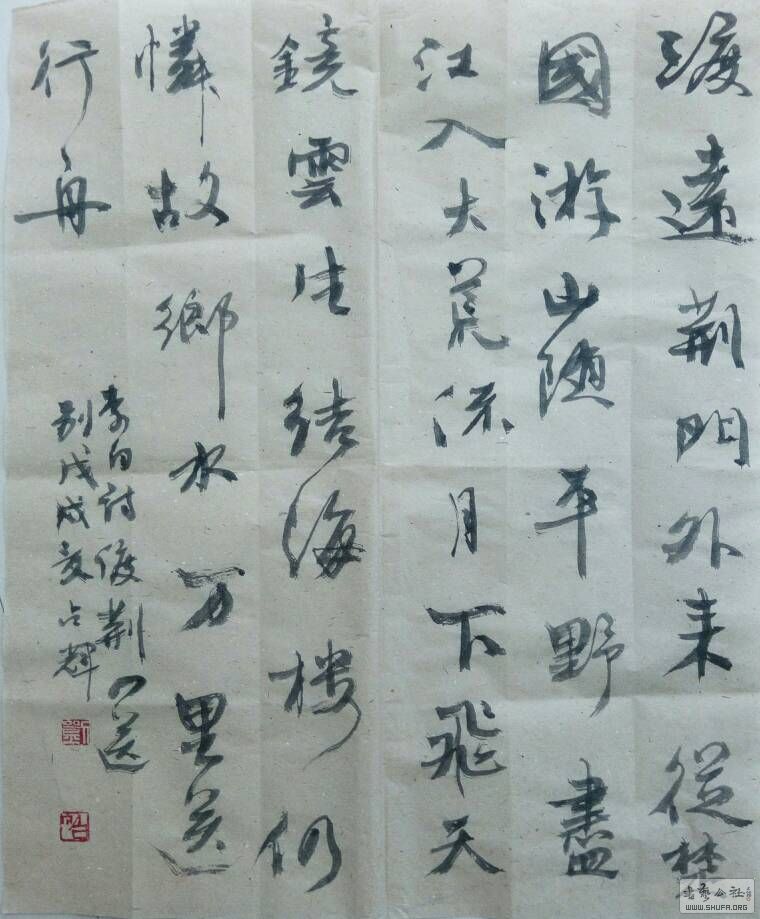 渡遠荆門外来從楚
國游山随平野盡
江入大荒流月下飛天
鏡雲生结海楼仍
憐故鄉水万里送
行舟
李白诗渡荆门送
别戊戌夏占辉
书艺公社
WWW.SHUFA.ORG